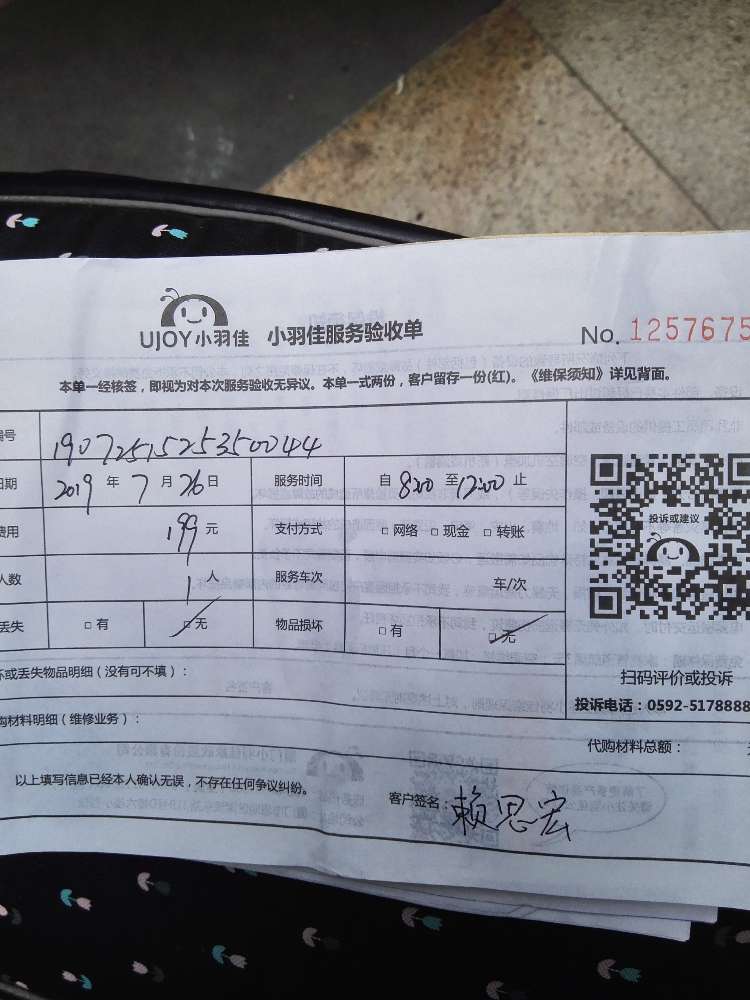 UJOY小羽佳 小羽佳服务验收单 No. 1257675
本单一经核签，即视为对本次服务验收无异议。本单一式两份，客户留存一份(红)。《维保须知》详见背面。
编号 1907251525350044
日期 2019 年 7 月 26 日 服务时间 自 8:00 至 12:00 止
费用 199 元 支付方式 □ 网络 □ 现金 □ 转账
人数 1 人 服务车次 车/次
丢失 □ 有 □ 无 物品损坏 □ 有 □ 无
投诉或建议
坏或丢失物品明细（没有可不填）：
扫码评价或投诉
投诉电话：0592-5178888
购材料明细（维修业务）：
代购材料总额：
以上填写信息已经本人确认无误，不存在任何争议纠纷。
客户签名：赖思宏